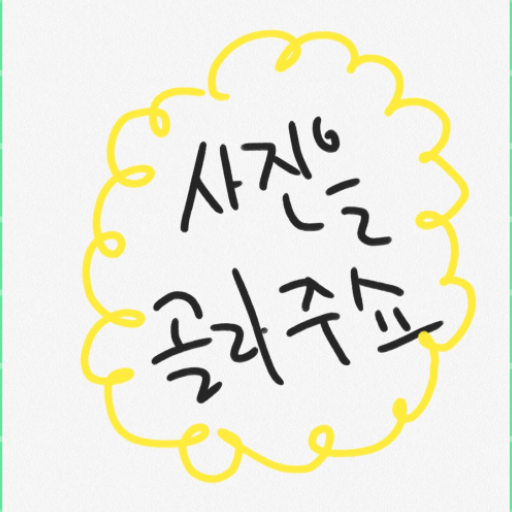 사진을
골라주쇼